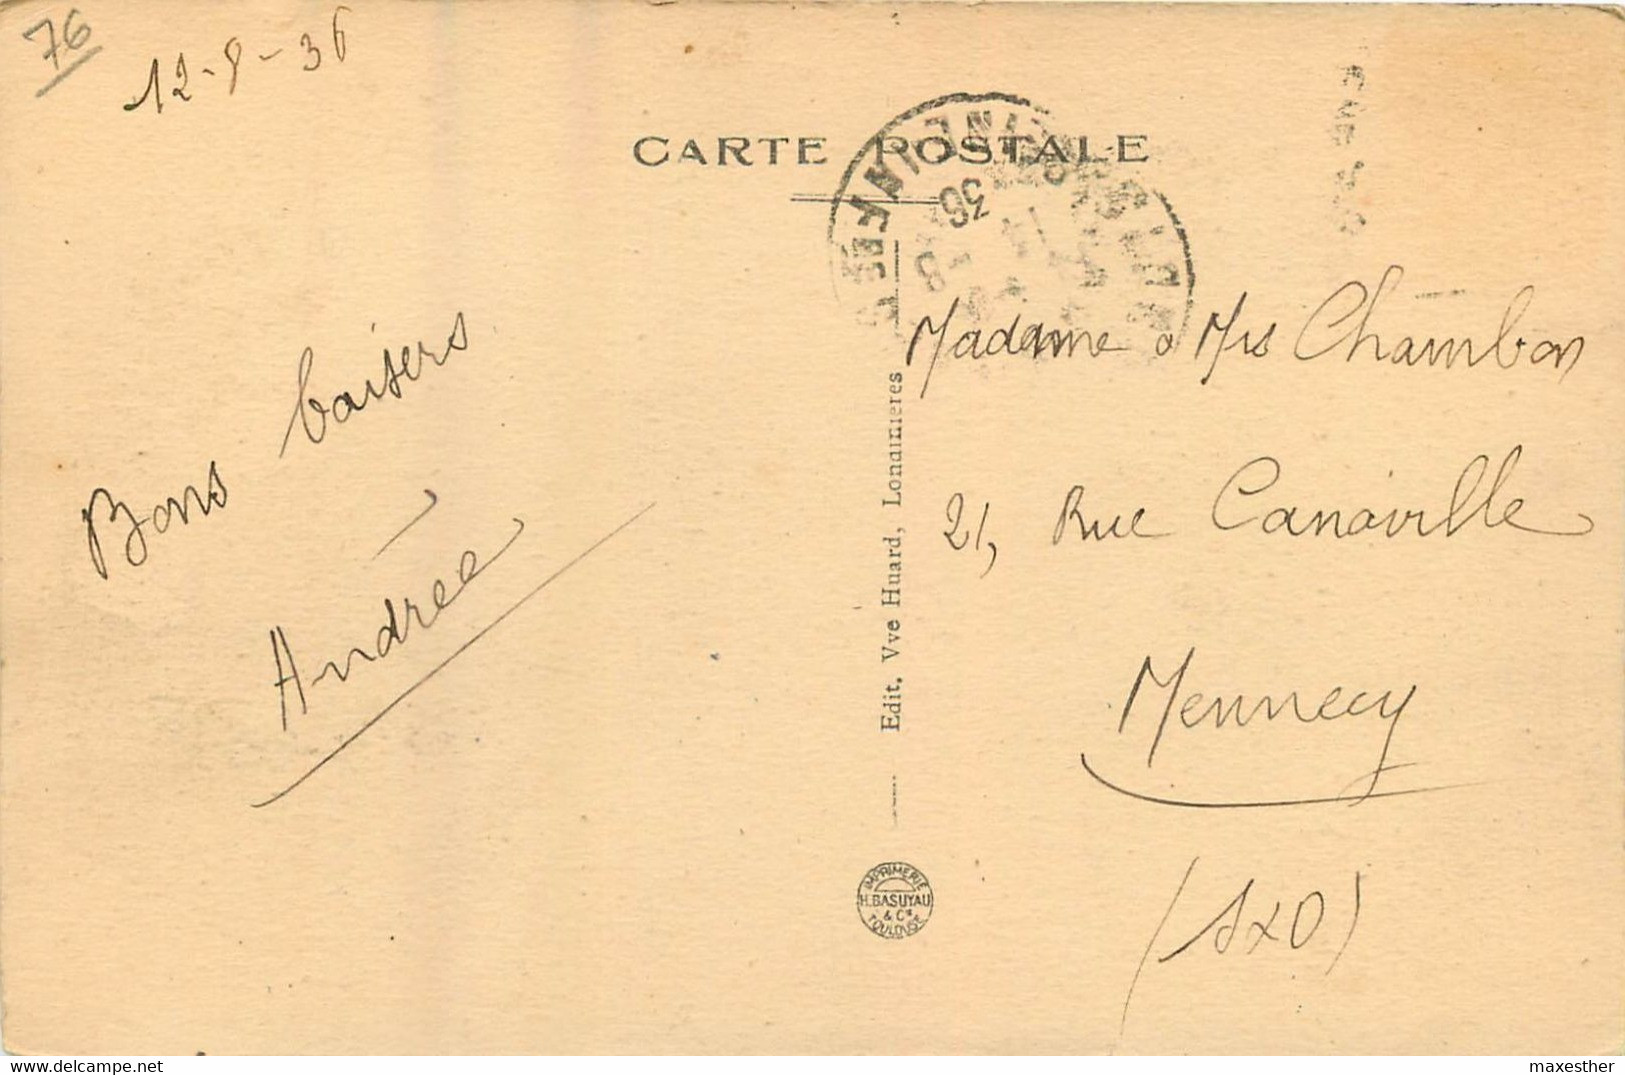 76
12-8-36
CARTE POSTALE
36
Bons baisers
Andrée
Edit. Vve Huard, Londinières
Madame & Mrs Chambon
21, Rue Canoville
Mennecy
(SxO)
IMPRIMERIE
H.BASUYAU
& Cie
TOULOUSE
maxesther